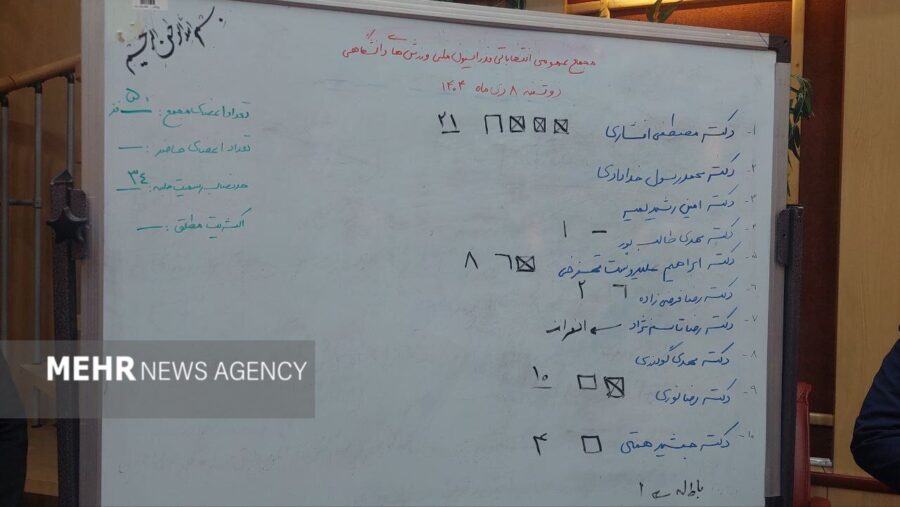 بسم الله الرحمن الرحیم
مجمع عمومی انتخاباتی فدراسیون ملی ورزش های دانشگاهی
دوشنبه ۸ دی ماه ۱۴۰۴
تعداد اعضای مجمع: ۵۰ نفر
تعداد اعضای حاضر: —
حد نصاب رسمیت جلسه: ۳۴
اکثریت مطلق: —
۱- دکتر مصطفی افشاری ۲۱
۲- دکتر محمدرسول خدادادی
۳- دکتر امین رشید لمیر
۴- دکتر مهدی طالب پور — ۱
۵- دکتر ابراهیم علیدوست قهفرخی ۸
۶- دکتر رضا فرضی زاده ۲
۷- دکتر رضا قاسم نژاد ← انصراف
۸- دکتر مهدی گودرزی
۹- دکتر رضا نوری ۱۰
۱۰- دکتر جمشید همتی ۴
باطله ← ۱
MEHR NEWS AGENCY